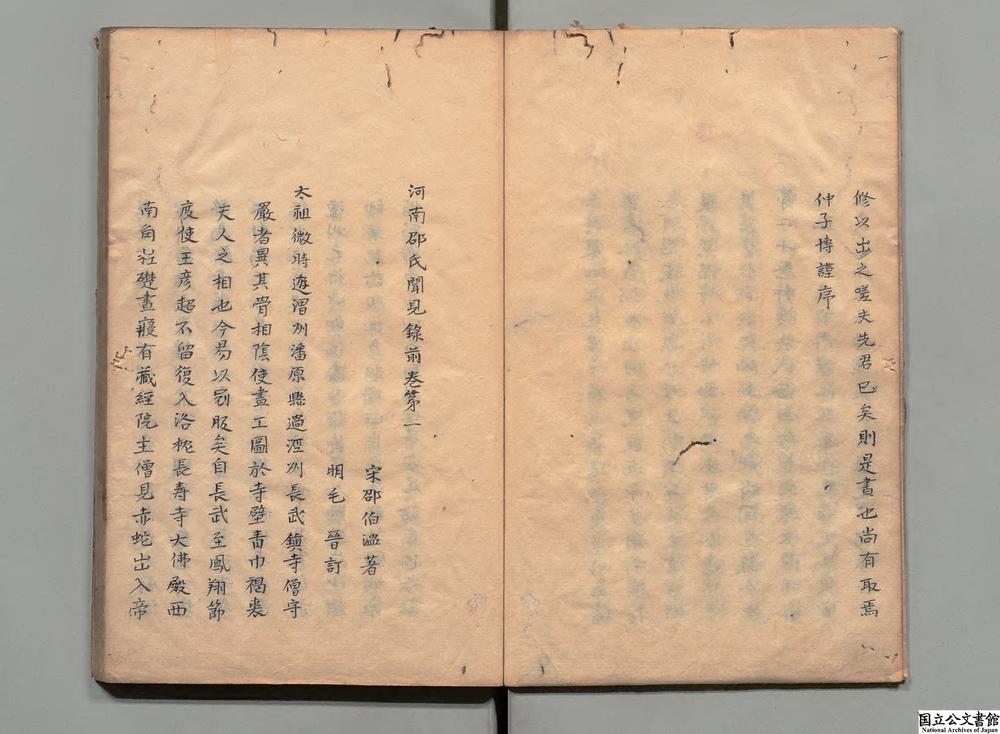 修以出之嗟夫先君已矣則是書也尚有取焉
仲子博謹序
河南邵氏聞見錄前卷第一
宋邵伯溫著
明毛晉訂
太祖微時遊渭州潘原縣過涇州長武鎮寺僧守
嚴者異其骨相陰使畫工圖於寺壁青巾褐裘
天人之相也今易以冠服矣自長武至鳳翔節
度使王彦超不留復入洛枕長壽寺大佛殿西
南角柱礎晝寢有藏經院主僧見赤蛇出入帝
国立公文書館
National Archives of Japan